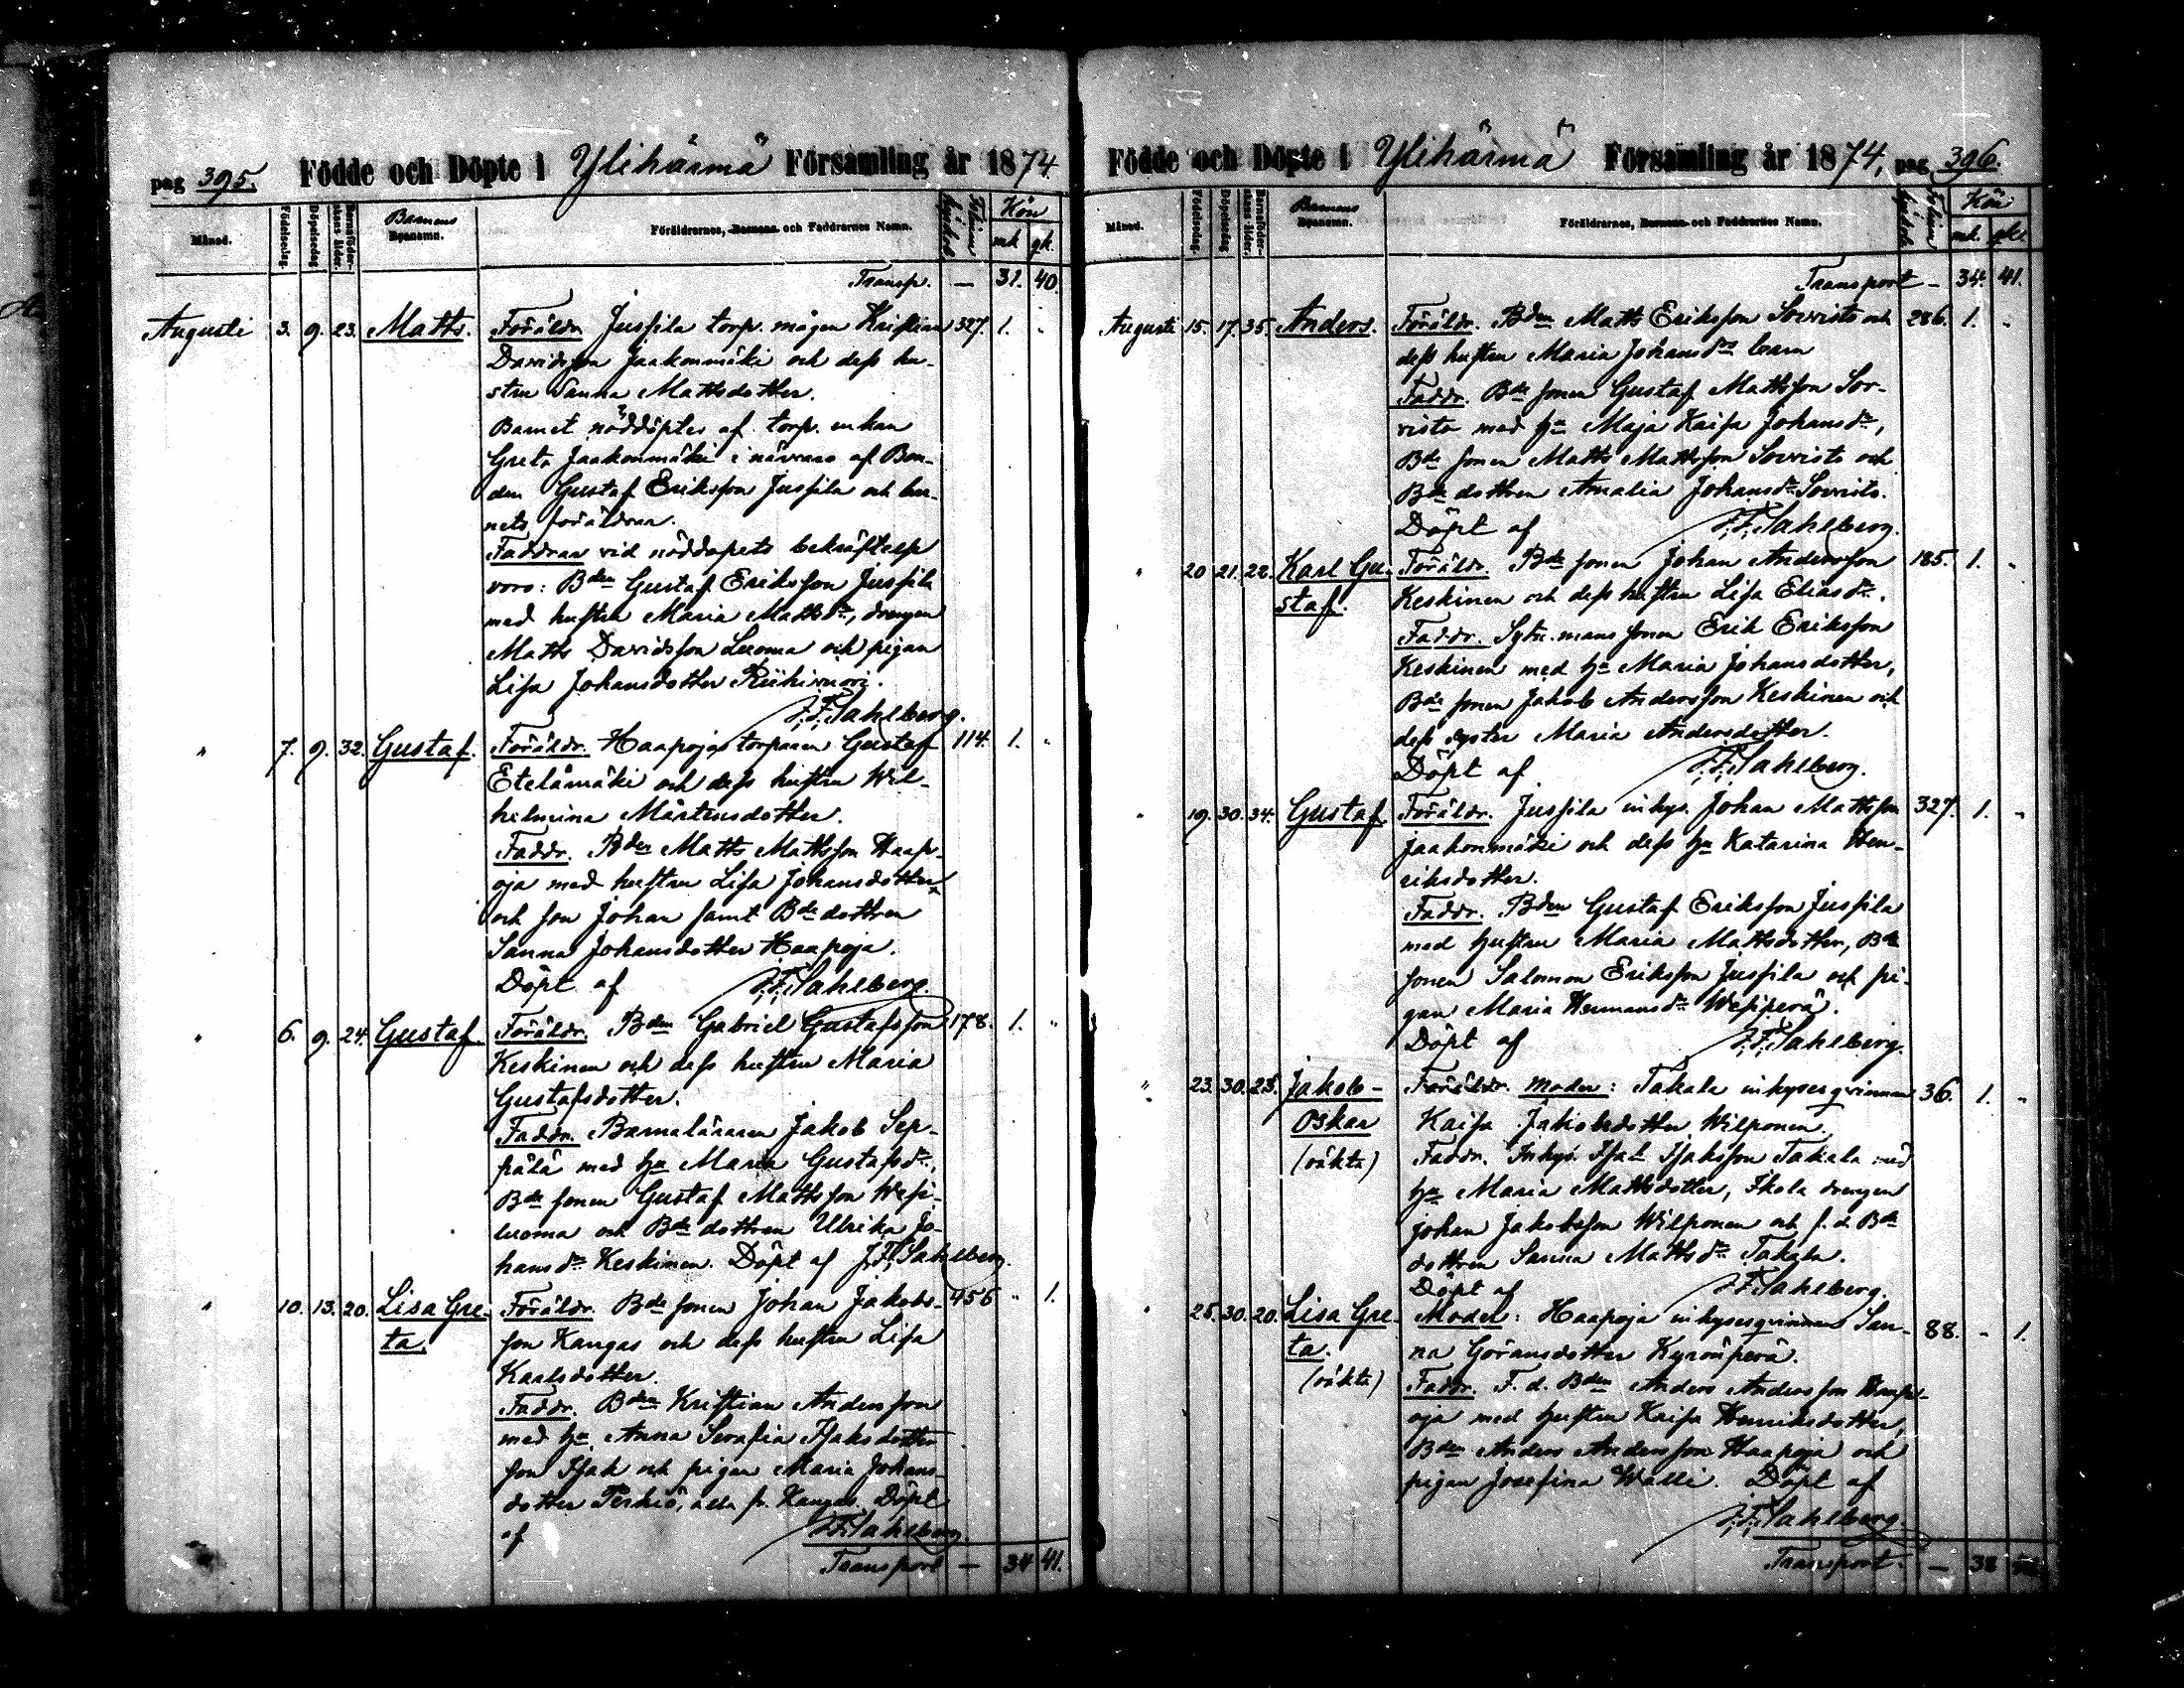 pag 395. Födde och Döpte i Ylihärmä Församling år 1874
Månad. Födelsedag. Döpelsedag Barnaföderskans ålder. Barnens Föräldrarnes, Barnens och Faddrarnes Namn. Kön
mk. qk.
Transp. — 31. 40.
Augusti 3. 9. 23. Matts. Föräldr. Jussila torp. mågen Kristian 327. 1. "
Davidsson Jaakonmäki och dess hu-
stru Sanna Mattsdotter.
Barnet nöddöptes af torp. enkan
Greta Jaakonmäki i närvaro af Bon-
den Gustaf Eriksson Jussila och bar-
nets föräldrar.
Faddrar vid nöddopets bekräftelse
voro: Bden Gustaf Eriksson Jussila
med hustru Maria Mattsdr, drengen
Matts Davidsson Luoma och pigan
Lisa Johansdotter Riihivuori.
J. F. Sahlberg.
" 7. 9. 32. Gustaf. Föräldr. Haapojas torparen Gustaf 114. 1. "
Etelämäki och dess hustru Wil-
helmina Mårtensdotter.
Faddr. Bden Matts Mattsson Haap-
oja med hustru Lisa Johansdotter
och son Johan samt Bde dottren
Sanna Johansdotter Haapoja.
Döpt af J. F. Sahlberg.
" 6. 9. 24. Gustaf Föräldr. Bden Gabriel Gustafsson 178. 1. "
Keskinen och dess hustru Maria
Gustafsdotter.
Faddr. Barnaläraren Jakob Sep-
pälä med hu Maria Gustafsdr.,
Bde sonen Gustaf Mattsson Wesi-
luoma och Bde dottren Ulrika Jo-
hansdr Keskinen. Döpt af J. F. Sahlberg.
" 10. 13. 20. Lisa Gre- Föräldr. Bde sonen Johan Jakobs- 456 " 1.
ta. son Kangas och dess hustru Lisa
Karlsdotter.
Faddr. Bden Kristian Andersson
med hu Anna Serafia Isaksdotter
son Isak och pigan Maria Johans-
dotter Perkiö, alla fr. Kangas. Döpt
af J. F. Sahlberg.
Transport — 34 41.
Födde och Döpte i Ylihärmä Församling år 1874, pag 396.
Månad. Födelsedag. Döpelsedag Barnaföderskans ålder. Barnens Föräldrarnes, Barnens och Faddrarnes Namn. Kön
mk. qk.
Transport — 34. 41.
Augusti 15. 17. 35. Anders. Föräldr. Bden Matts Eriksson Sorvisto och 286. 1. "
dess hustru Maria Johansdr
Faddr. Bde sonen Gustaf Mattsson Sor-
visto med hu Maja Kaisa Johansdr,
Bde sonen Matts Mattsson Sorvisto och
Bde dottren Amalia Johansdr Sorvisto.
Döpt af J. F. Sahlberg.
" 20 21. 22. Karl Gu- Föräldr. Bde sonen Johan Andersson 185. 1. "
staf. Keskinen och dess hustru Lisa Eliasdr.
Faddr. Sytn. mans sonen Erik Eriksson
Keskinen med hu Maria Johansdotter,
Bde sonen Jakob Andersson Keskinen och
dess syster Maria Andersdotter.
Döpt af J. F. Sahlberg.
" 19. 30. 34. Gustaf Föräldr. Jussila inhys. Johan Mattsson 327. 1. "
Jaakonmäki och dess hu Katarina Hen-
riksdotter.
Faddr. Bden Gustaf Eriksson Jussila
med hustru Maria Mattsdotter, Bde
sonen Salomon Eriksson Jussila och pi-
gan Maria Hermansdr Wesiperä.
Döpt af J. F. Sahlberg.
" 23. 30. 25. Jakob- Föräldr. Moder: Takala inhysesqvinnan 36. 1. "
Oskar Kaisa Jakobsdotter Wilponen.
(oäkta) Faddr. Inhys. Isak Isaksson Takala med
hu Maria Mattsdotter, Skola drengen
Johan Jakobsson Wilponen och f. d. Bde
dottren Sanna Mattsdr Takala.
Döpt af J. F. Sahlberg.
" 25. 30. 20. Lisa Gre- Moder: Haapoja inhysesqvinnan San- 88. " 1.
ta. na Göransdotter Kyrönperä.
(oäkta) Faddr. F. d. Bden Anders Andersson Haap-
oja med hustru Kaisa Henriksdotter,
Bden Anders Andersson Haapoja och
pigan Josefina Walli. Döpt af
J. F. Sahlberg.
Transport. — 38